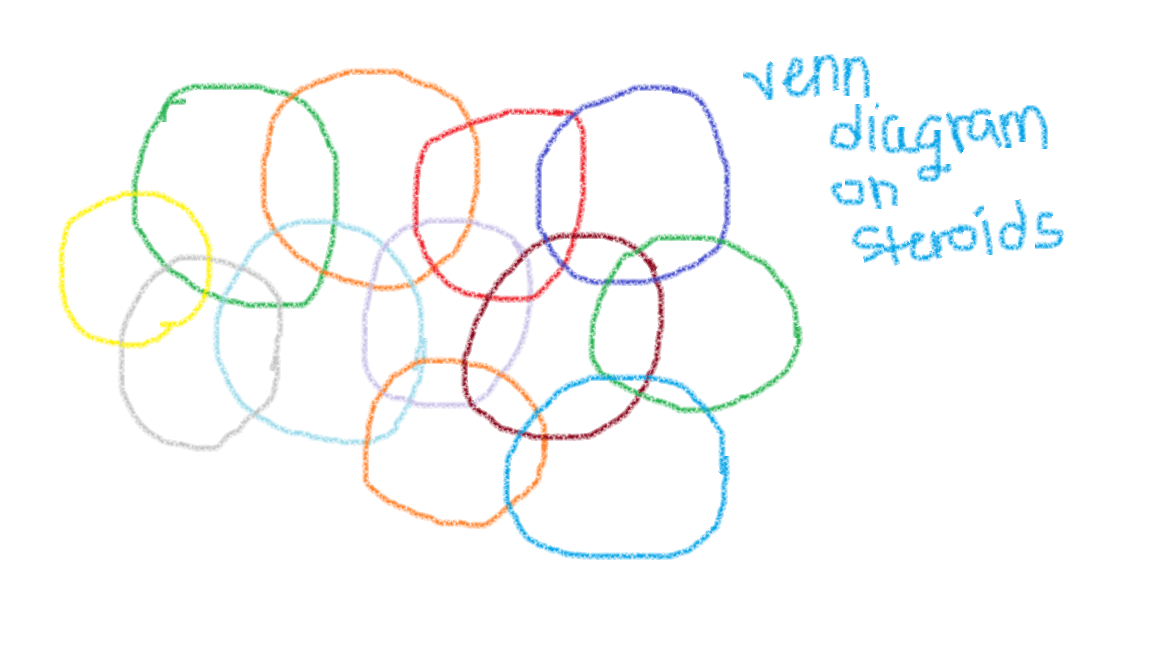 venn
diagram
on
steroids